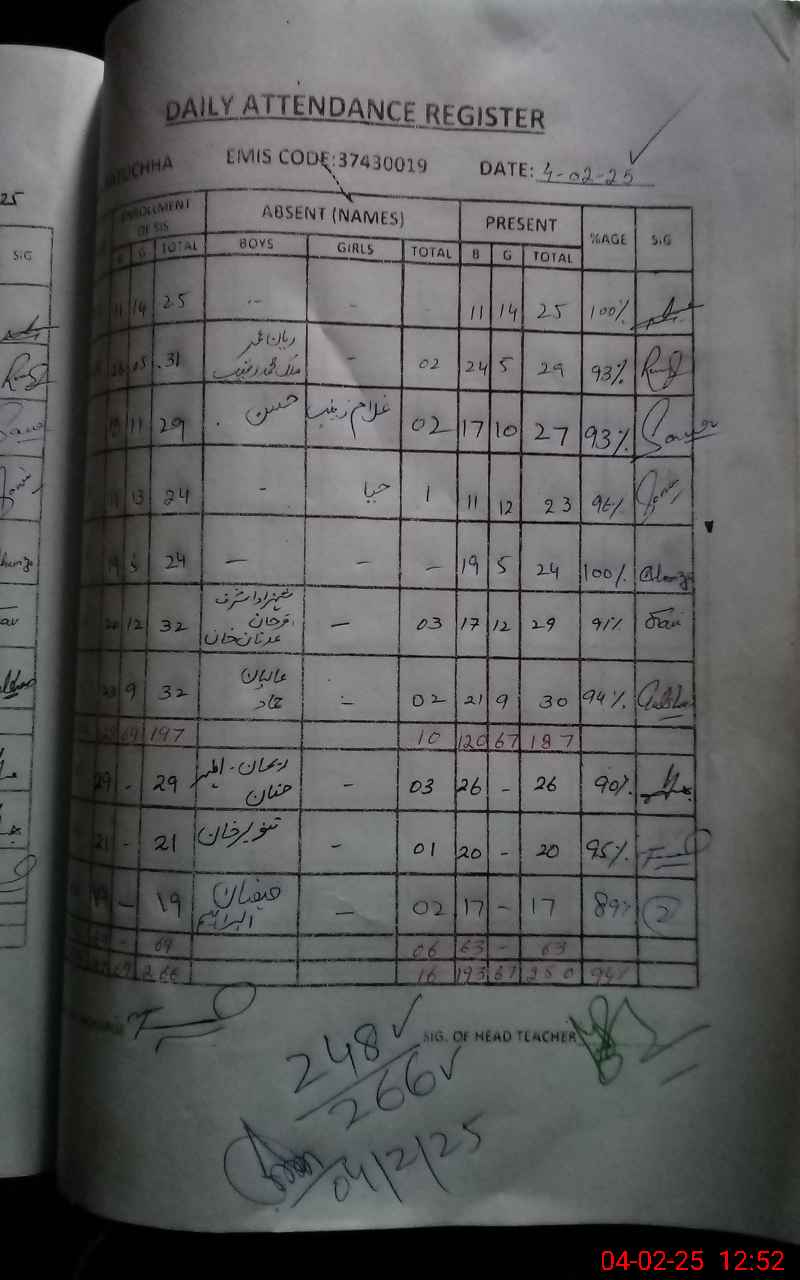 25
SIG
DAILY ATTENDANCE REGISTER
EMIS CODE:37430019 DATE: 4-02-25
ENROLLMENT OF SIS ABSENT (NAMES) PRESENT %AGE SIG
B G TOTAL BOYS GIRLS TOTAL B G TOTAL
11 14 25 - - 11 14 25 100%
05 31 - 02 24 5 29 93%
11 29 حسن غلام زینب 02 17 10 27 93%
11 13 24 - حیا 1 11 12 23 96%
19 5 24 - - - 19 5 24 100%
20 12 32 عدنان خان - 03 17 12 29 91%
23 9 32 - 02 21 9 30 94%
69 197 10 120 67 187
29 - 29 ریحان - حنان - 03 26 - 26 90%
21 - 21 تنویر خان - 01 20 - 20 95%
19 - 19 فیضان ابراہیم - 02 17 - 17 89%
- 69 06 63 - 63
266 16 193 67 250 94%
SIG. OF HEAD TEACHER
248
266
04/2/25
04-02-25 12:52